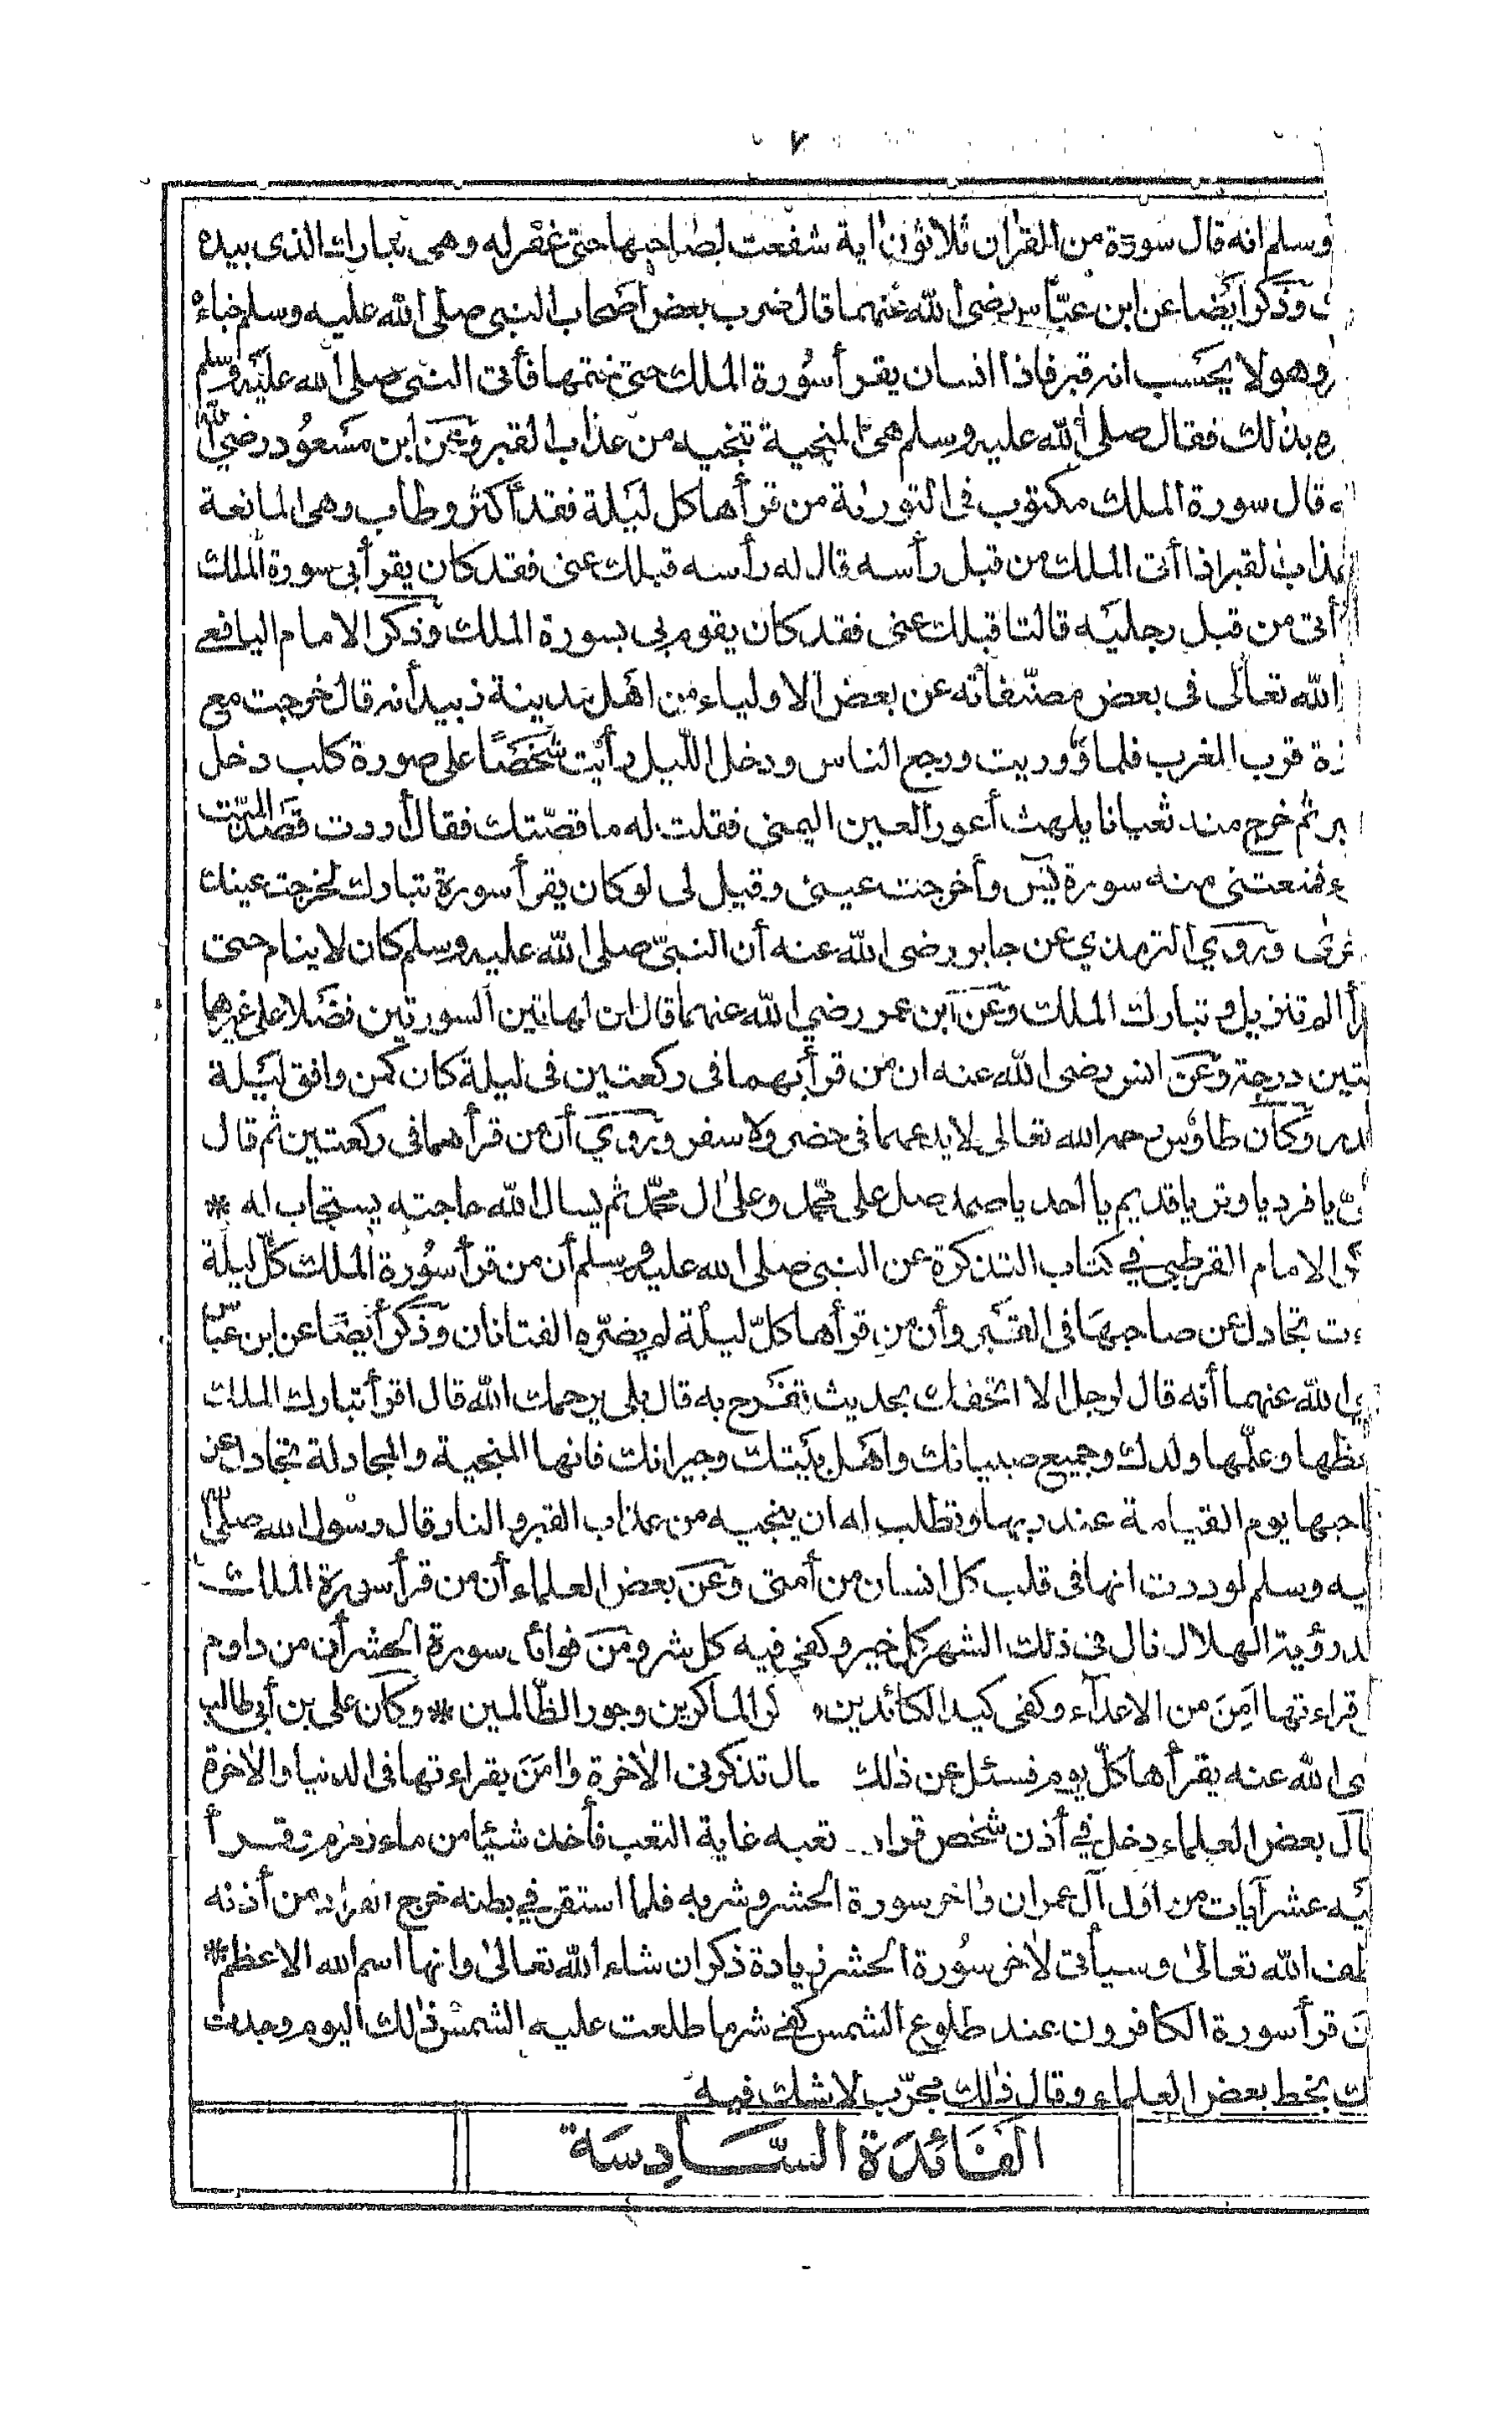 ٧
وسلم انه قال سورة من القرآن ثلاثون آية شفعت لصاحبها حتى غفر له وهى تبارك الذى بيده
وذكر أيضا عن ابن عبّاس رضى الله عنهما قال ضرب بعض أصحاب النبى صلى الله عليه وسلم خباءه
وهو لا يحسب انه قبر فاذا انسان يقرأ سُورة الملك حتى ختمها فأتى النبى صلى الله عليه وسلم
بذلك فقال صلى الله عليه وسلم هى المنجية تنجيه من عذاب القبر وعن ابن مسعُود رضى الله
قال سورة الملك مكتوب فى التورٰية من قرأها كل ليلة فقد أكثر وطاب وهى المانعة
القبر اذا أتى الملك من قبل رأسه قال له رأسه قبلك عنى فقد كان يقرأ بى سورة الملك
أتى من قبل رجليه قالتا قبلك عنى فقد كان يقوم بى بسورة الملك وذكر الامام اليافعى
الله تعالى فى بعض مصنّفاته عن بعض الاولياء من اهل مدينة زبيد أنه قال خرجت مع
زة قرب المغرب فلما وُوريت ورجع الناس ودخل اللّيل رأيت شخصًا على صورة كلب دخل
بر ثم خرج منه ثعبانا يلهث أعور العين اليمنى فقلت له ما قصّتك فقال أردت قصد الميّت
فمنعتنى منه سورة يٰس وأخرجت عينى وقيل لى لو كان يقرأ سورة تبارك لخرجت عينك
وروى الترمذي عن جابر رضى الله عنه أن النبىّ صلى الله عليه وسلم كان لا ينام حتى
الم تنزيل وتبارك الملك وعن ابن عمر رضي الله عنهما قال ان لهاتين السورتين فضلا على غيرهما
تين درجة وعن انس رضى الله عنه ان من قرأ بهما فى ركعتين فى ليلة كان كمن وافق ليلة
وكان طاؤس رحمه الله تعالى لا يدعهما فى حضر ولا سفر وروي أن من قرأهما فى ركعتين ثم قال
يا فرد يا وتر يا قديم يا احد يا صمد صل على محمّد وعلى آل محمّد ثم يسال الله حاجته يستجاب له *
الامام القرطبي في كتاب التذكرة عن النبى صلى الله عليه وسلم أن من قرأ سُورة الملك كلّ ليلة
ت تجادل عن صاحبها فى القبر وأن من قرأها كلّ ليلة لم يضرّه الفتانان وذكر أيضًا عن ابن عبّاس
الله عنهما أنه قال لرجل الا اتحفك بحديث تفرح به قال بلى يرحمك الله قال اقرأ تبارك الملك
وعلّمها ولدك وجميع صبيانك واهل بيتك وجيرانك فانها المنجية والمجادلة تجادل عن
احبها يوم القيامة عند ربها وتطلب له ان ينجيه من عذاب القبر والنار وقال رسول الله صلى الله
يه وسلم لوددت انها فى قلب كل انسان من أمتى وعن بعض العلماء أن من قرأ سورة الملك
رؤية الهلال نال فى ذلك الشهر كل خير وكفى فيه كل شر ومن فوائد سورة الحشر أن من داوم
قراءتها أمِنَ من الاعداء وكفى كيد الكائدين الماكرين وجور الظّالمين * وكان على بن أبي طالب
الله عنه يقرأها كلّ يوم فسئل عن ذلك تذكرنى الآخرة وامن بقراءتها فى الدنيا والآخرة
بعض العلماء دخل في أذن شخص قراد تعبه غاية التعب فأخذ شيئا من ماء زمزم وقرأ
يه عشر آيات من اول آل عمران وآخر سورة الحشر وشربه فلما استقر في بطنه خرج القراد من أذنه
الله تعالى وسيأتى لآخر سُورة الحشر زيادة ذكر ان شاء الله تعالى وانها اسم الله الاعظم *
قرأ سورة الكافرون عند طلوع الشمس كفى شر ما طلعت عليه الشمس ذلك اليوم وجدت
بخط بعض العلماء وقال ذلك مجرّب لا شك فيه
الفَائدَة السَّادِسَة